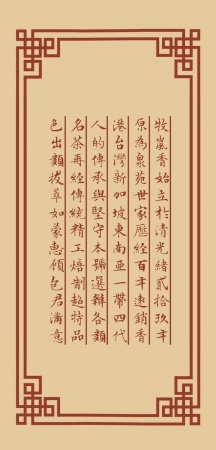 牧嵐香始立於清光緒貳拾玖年
原為泉苑世家歷經百年遠銷香
港台灣新加坡東南亞一帶四代
人的傳承與堅守本號選辦各類
名茶再經傳統精工焙制超特品
色出類拔萃如蒙惠顧包君滿意